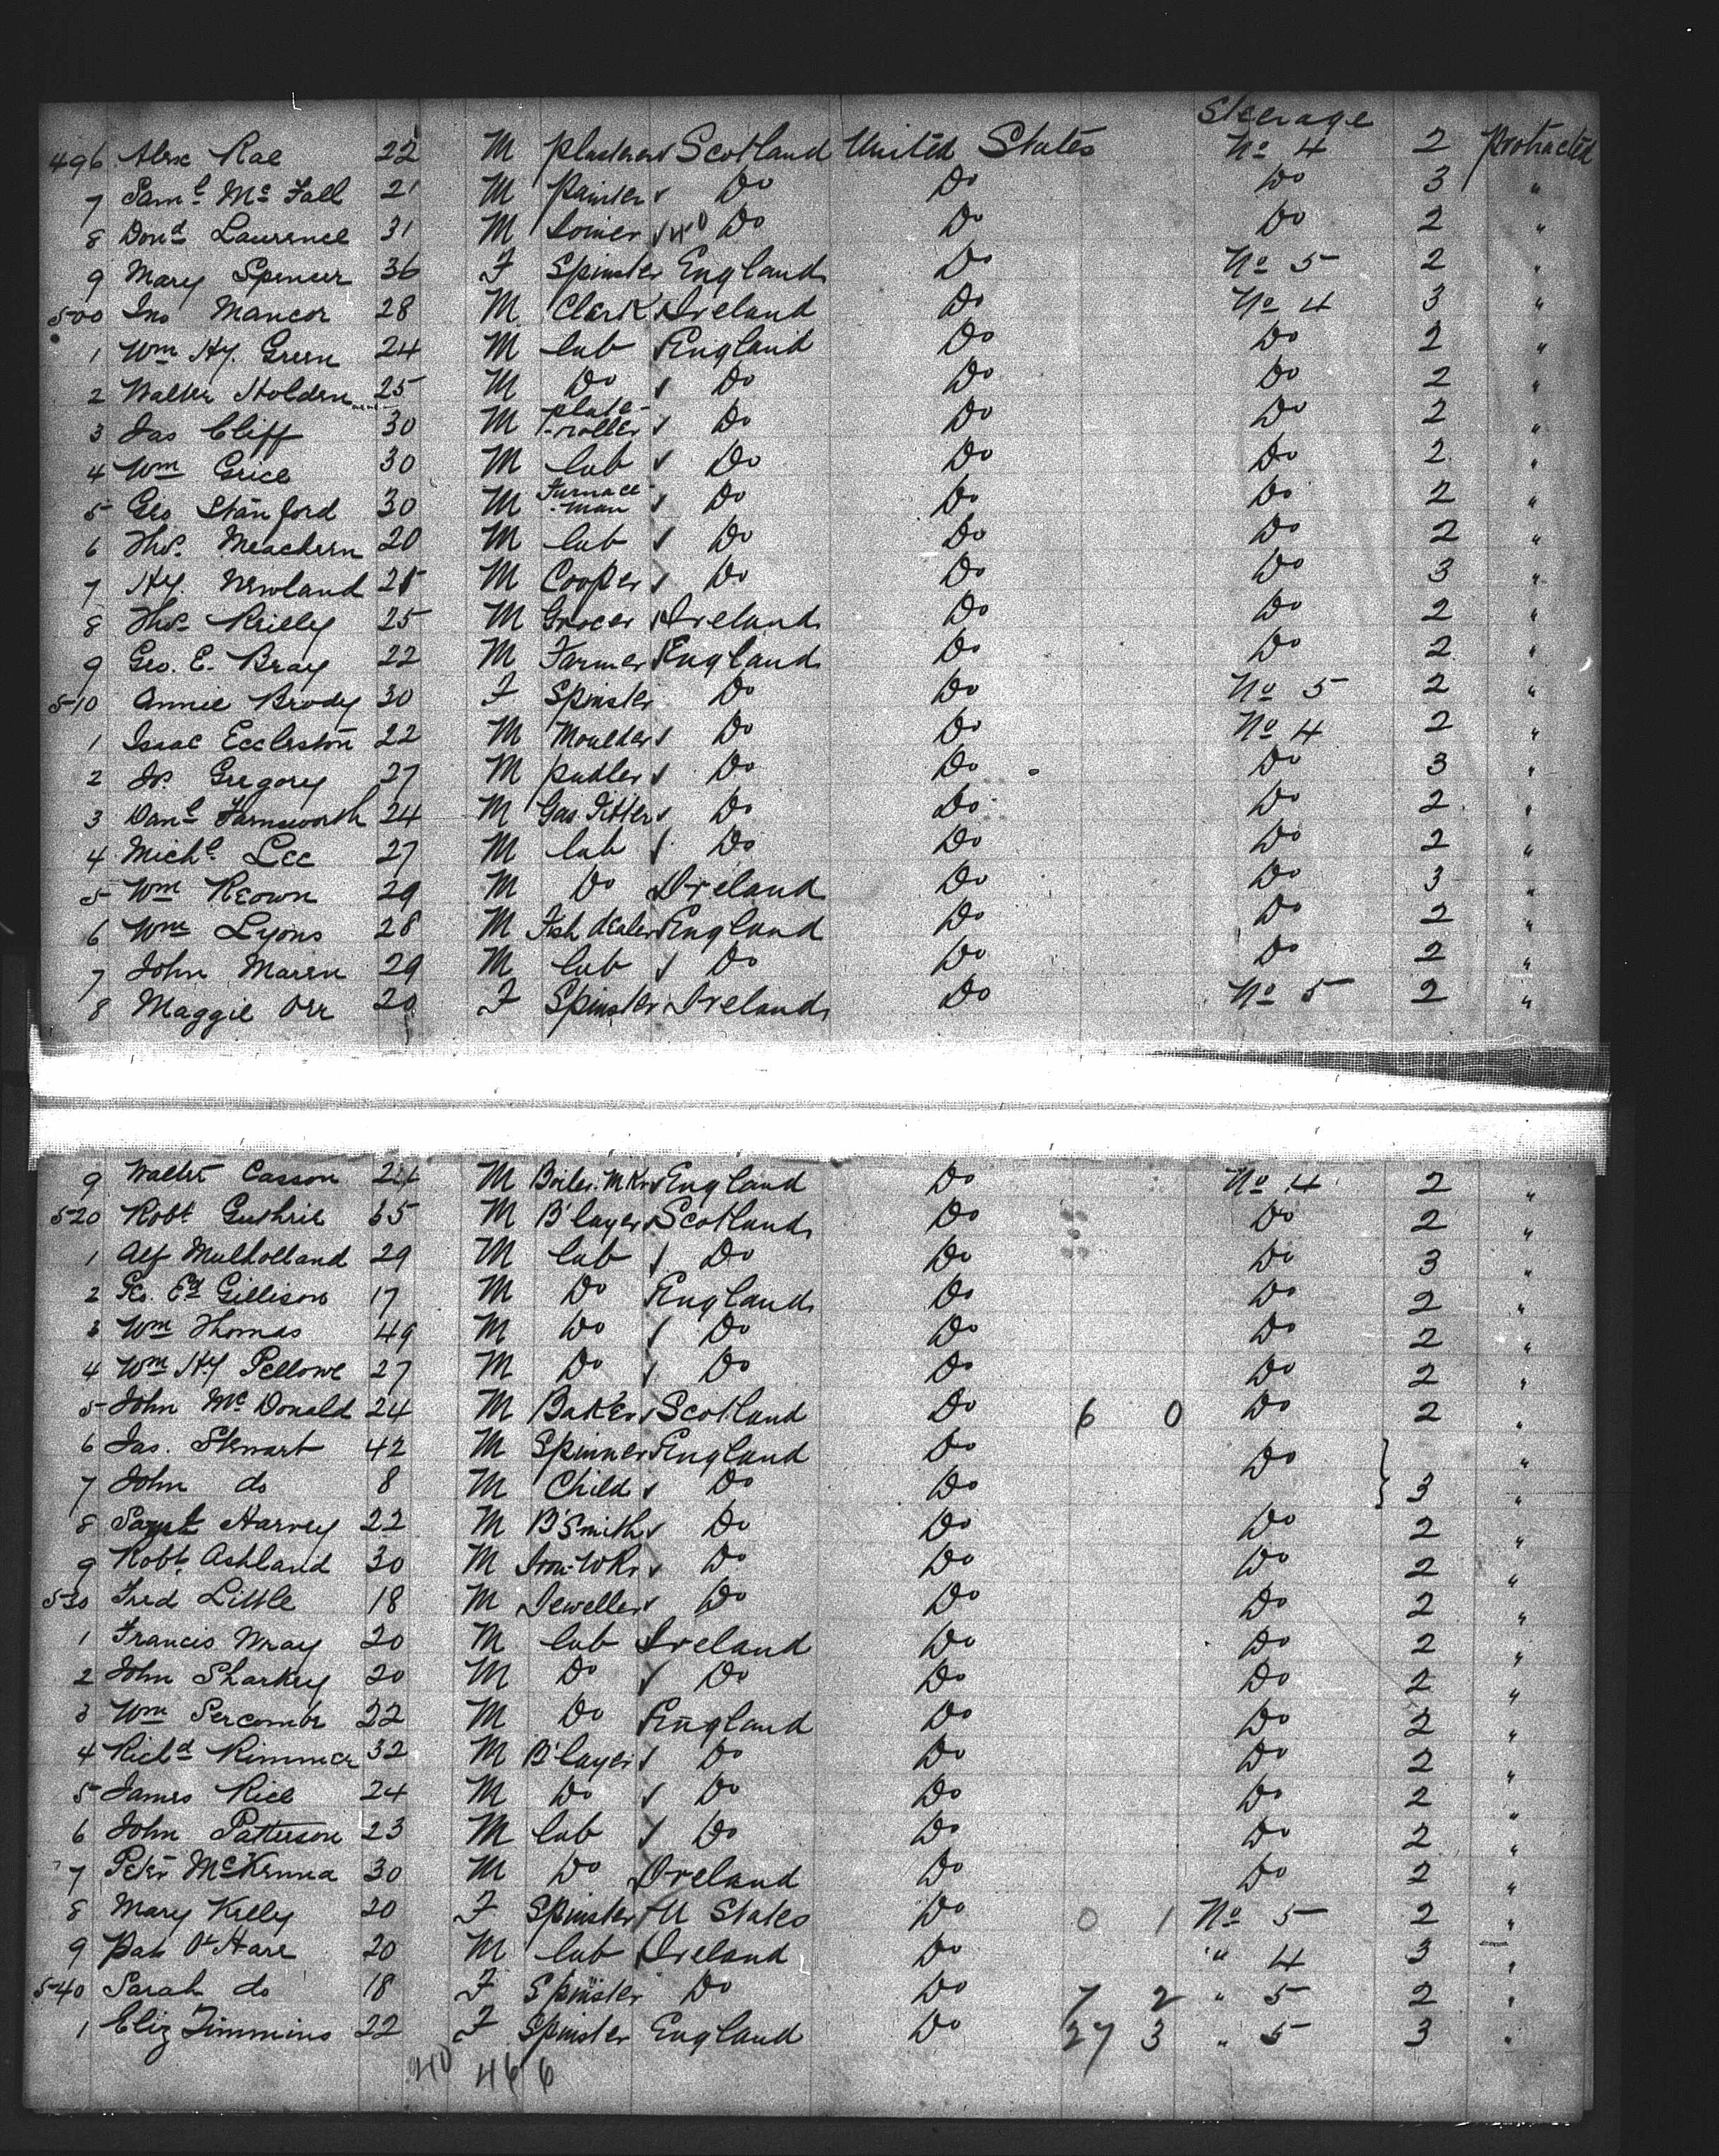 Steerage
496 Alex Rae 22 M Plasterer Scotland United States No 4 2 Protracted
7 Saml McFall 21 M Painter Do Do Do 3 "
8 Dond Laurence 31 M Joiner Do Do Do 2 "
9 Mary Spencer 36 F Spinster England Do No 5 2 "
500 Jno Mancor 28 M Clerk Ireland Do No 4 3 "
1 Wm Hy. Green 24 M lab England Do Do 2 "
2 Walter Holden 25 M Do Do Do Do 2 "
3 Jas Cliff 30 M Plate-roller Do Do Do 2 "
4 Wm Grice 30 M lab Do Do Do 2 "
5 Geo Stanford 30 M Furnace-man Do Do Do 2 "
6 Thos. Meachern 20 M lab Do Do Do 2 "
7 Hy. Newland 25 M Cooper Do Do Do 3 "
8 Thos. Reilly 25 M Grocer Ireland Do Do 2 "
9 Geo. E. Bray 22 M Farmer England Do Do 2 "
510 Annie Brody 30 F Spinster Do Do No 5 2 "
1 Isaac Eccleston 22 M Moulder Do Do No 4 2 "
2 Js. Gregory 27 M Pudler Do Do Do 3 "
3 Danl Farnsworth 24 M Gas Fitter Do Do Do 2 "
4 Michl Lee 27 M lab Do Do Do 2 "
5 Wm Keown 29 M Do Ireland Do Do 3 "
6 Wm Lyons 28 M Fish dealer England Do Do 2 "
7 John Maren 29 M lab Do Do Do 2 "
8 Maggie Orr 20 F Spinster Ireland Do No 5 2 "
9 Walter Casson M Boiler. Mkr England Do No 4 2 "
520 Robt Guthrie M B'layer Scotland Do Do 2 "
1 Alf Mulholland 29 M lab Do Do Do 3 "
2 Geo. Ed Gillison 17 M Do England Do Do 2 "
3 Wm Thomas 49 M Do Do Do Do 2 "
4 Wm Hy Pellowe 27 M Do Do Do Do 2 "
5 John McDonald 24 M Baker Scotland Do 6 0 Do 2 "
6 Jas. Stewart 42 M Spinner England Do Do "
7 John do 8 M Child Do Do 3 "
8 Saml Harvey 22 M B'Smith Do Do Do 2 "
9 Robt. Ashland 30 M Iron-Wkr Do Do Do 2 "
530 Fred Little 18 M Jeweller Do Do Do 2 "
1 Francis Wray 20 M lab Ireland Do Do 2 "
2 John Sharkey 20 M Do Do Do Do 2 "
3 Wm Sercombe 22 M Do England Do Do 2 "
4 Richd Rimmer 32 M B'layer Do Do Do 2 "
5 James Rice 24 M Do Do Do Do 2 "
6 John Patterson 23 M lab Do Do Do 2 "
7 Peter McKenna 30 M Do Ireland Do Do 2 "
8 Mary Kelly 20 F Spinster U States Do 0 1 No 5 2 "
9 Pat O'Hare 20 M lab Ireland Do " 4 3 "
540 Sarah do 18 F Spinster Do Do 7 2 " 5 2 "
1 Eliz Timmins 22 F Spinster England Do 27 3 " 5 3 "
40 46 6